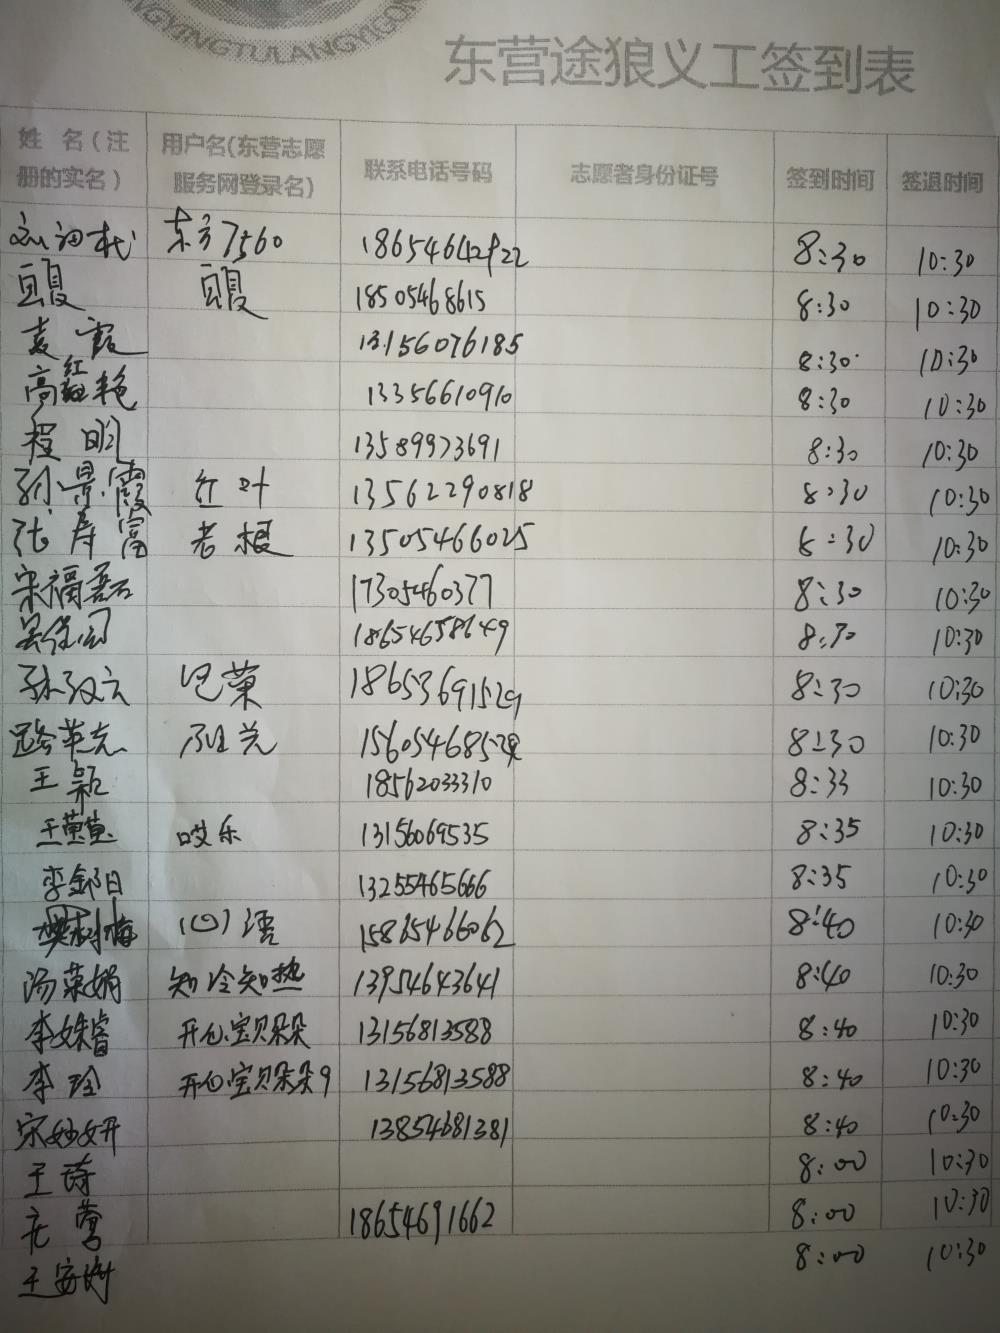 NGYINGTULANGYIGON
东营途狼义工签到表
姓 名（注册的实名） 用户名(东营志愿服务网登录名) 联系电话号码 志愿者身份证号 签到时间 签退时间
东方7560 8:30 10:30
18505468615 8:30 10:30
袁霞 13156076185 8:30 10:30
高红艳 13356610910 8:30 10:30
程明 13589973691 8:30 10:30
孙景霞 红叶 13562290818 8:30 10:30
张寿富 老根 13505466025 8:30 10:30
宋福磊 17305460377 8:30 10:30
18654658649 8:30 10:30
18653691529 8:30 10:30
路英克 8:30 10:30
王颖 18562033310 8:33 10:30
王萤萤 哎乐 13156069535 8:35 10:30
13255465666 8:35 10:30
樊树梅 15865466062 8:40 10:30
汤荣娟 知冷知热 13954643641 8:40 10:30
李姝睿 开心宝贝朵朵 13156813588 8:40 10:30
李玲 开心宝贝朵朵9 13156813588 8:40 10:30
宋妙妍 13854681381 8:40 10:30
王琦 8:00 10:30
18654691662 8:00 10:30
8:00 10:30